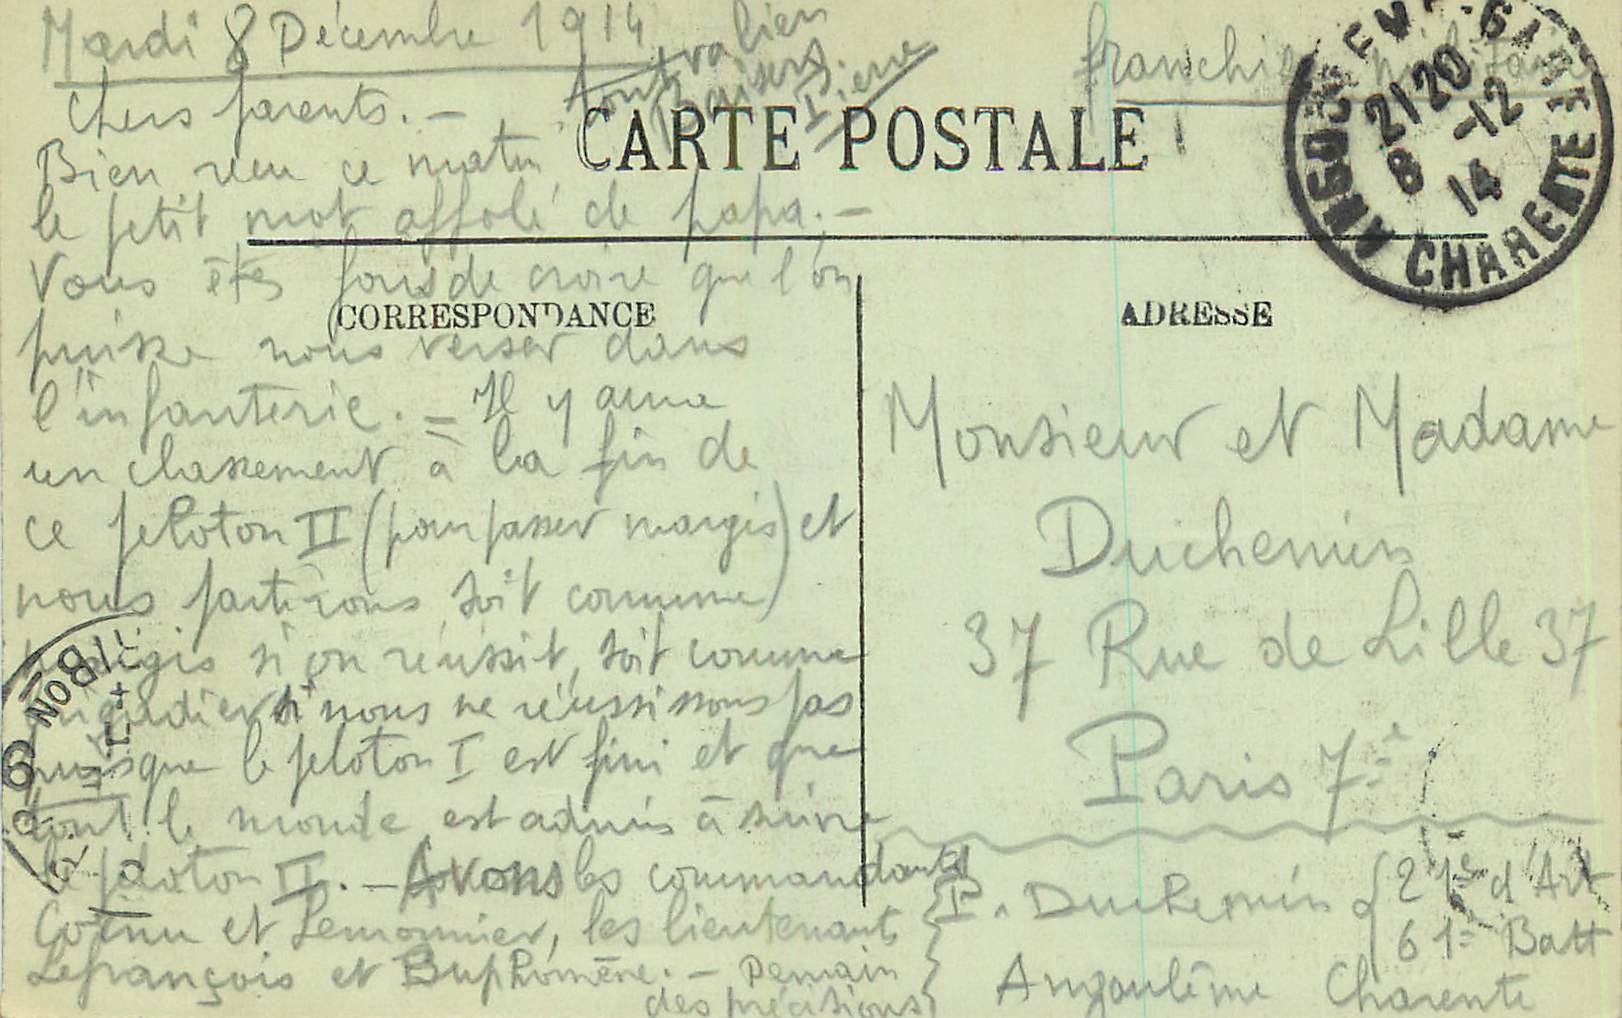 Mardi 8 Décembre 1914
Chers parents. —
Bien reçu ce matin
le petit mot affolé de papa. —
Vous êtes fous de croire que l'on
puisse nous verser dans
l'infanterie. — Il y aura
un classement à la fin de
ce peloton II (pour passer margis) et
nous partirons, soit comme
margis si on réussit, soit comme
brigadiers si nous ne réussissons pas
puisque le peloton I est fini et que
tout le monde est admis à suivre
le peloton II. — Avons les commandants
et Lemonnier, les lieutenants
Lefrançois et Buphomène. — Demain
des précisions
Tout va bien
Baisers.
Pierre
franchise militaire
CARTE POSTALE
CORRESPONDANCE
ADRESSE
ANGOULEME-GARE
CHARENTE
2120
8 -12
14
Monsieur et Madame
Duchemin
37 Rue de Lille 37
Paris 7e
P. Duchemin { 21e d'Art
61e Batt
Angoulême Charente